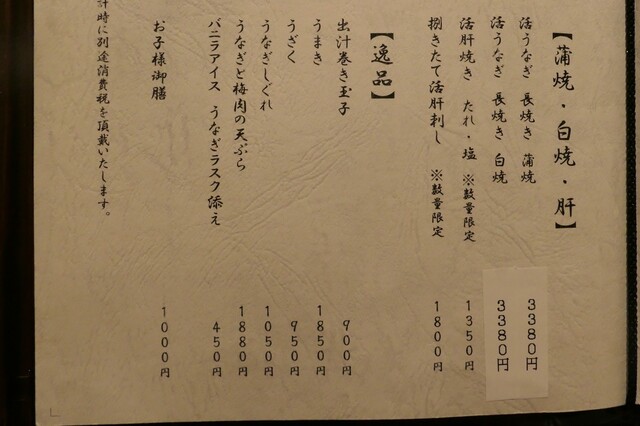 【蒲焼・白焼・肝】
活うなぎ 長焼き 蒲焼 3380円
活うなぎ 長焼き 白焼 3380円
活肝焼き たれ・塩 ※数量限定 1350円
捌きたて活肝刺し ※数量限定 1800円
【逸品】
出汁巻き玉子 900円
うまき 1850円
うざく 950円
うなぎしぐれ 1050円
うなぎと梅肉の天ぷら 1880円
バニラアイス うなぎラスク添え 450円
お子様御膳 1000円
計時に別途消費税を頂戴いたします。